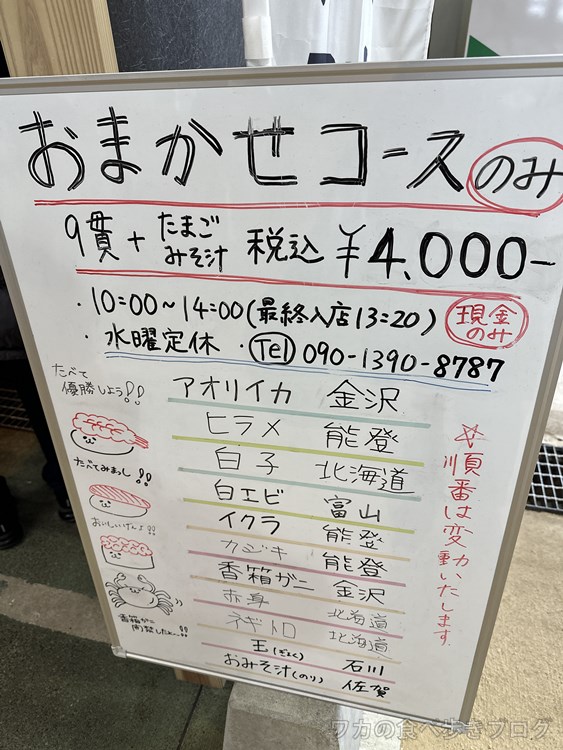 おまかせコースのみ
9貫+たまごみそ汁 税込 ¥4,000-
・10:00~14:00(最終入店13:20) 現金のみ
・水曜定休 ・Tel 090-1390-8787
たべて
優勝しよう!!
アオリイカ 金沢
ヒラメ 能登
たべてみまっし!!
白子 北海道
白エビ 富山
おいしいげんよ!!
イクラ 能登
カジキ 能登
香箱ガニ 金沢
赤身 北海道
ネギトロ 北海道
香箱ガニ
玉(ぎょく) 石川
おみそ汁(のり) 佐賀
☆順番は変動いたします
ワカの食べ歩きブログ